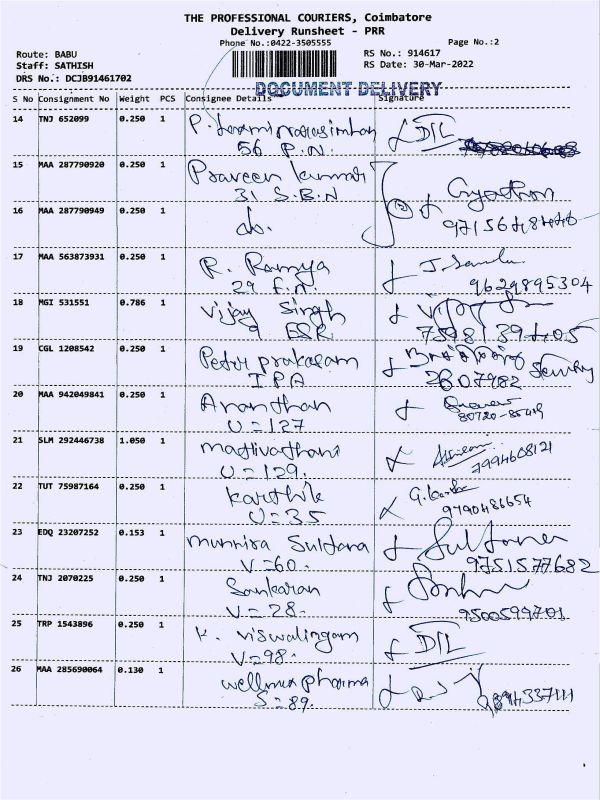 THE PROFESSIONAL COURIERS, Coimbatore
Delivery Runsheet - PRR
Phone No.:0422-3505555
Page No.:2
Route: BABU
Staff: SATHISH
DRS No.: DCJB91461702
RS No.: 914617
RS Date: 30-Mar-2022
DOCUMENT DELIVERY
S No Consignment No Weight PCS Consignee Details Signature
14 TNJ 652099 0.250 1 P. Laxminarasimhan DJL
56 P.N.
15 MAA 287790920 0.250 1 Praveen Kumar
31 S.B.N
16 MAA 287790949 0.250 1 do.
17 MAA 563873931 0.250 1 R. Ramya
29 F.N. 9629895304
18 MGI 531551 0.786 1 Vijay Singh
9 ESR
19 CGL 1208542 0.250 1 Peter prakasam
IPA 2607982
20 MAA 942049841 0.250 1 Ananthan
U = 127
21 SLM 292446738 1.050 1 mathivathani
U = 129. 7994608121
22 TUT 75987164 0.250 1 Karthik
U = 35 9790486654
23 EDQ 23207252 0.153 1 Munnira Sultana
V = 60. 9751577682
24 TNJ 2070225 0.250 1 Sankaran
V = 28. 9500599701
25 TRP 1543896 0.250 1 K. Viswalingam DJL
V = 98.
26 MAA 285690064 0.130 1 wellmax pharma
S = 89.